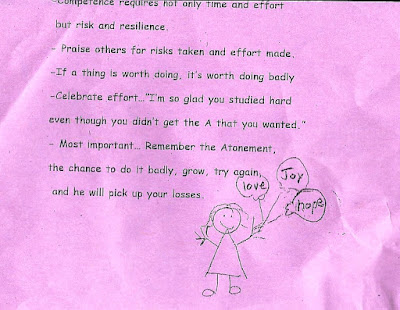 -Competence requires not only time and effort
but risk and resilience.
- Praise others for risks taken and effort made.
-If a thing is worth doing, it's worth doing badly
-Celebrate effort..."I'm so glad you studied hard
even though you didn't get the A that you wanted."
- Most important... Remember the Atonement,
the chance to do it badly, grow, try again,
and he will pick up your losses.
love
Joy
hope